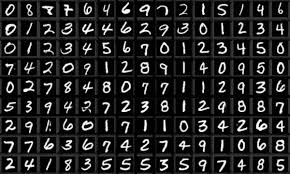 0 8 7 6 4 6 9 7 2 1 5 1 4 6
0 1 2 3 4 4 6 2 9 3 0 1 2 3 4
0 1 2 3 4 5 6 7 0 1 2 3 4 5 0
7 4 2 0 9 1 2 8 9 1 4 0 9 5 0
0 2 7 8 4 8 0 7 7 1 1 2 9 3 6
5 3 9 4 2 7 2 3 8 1 2 9 8 8 7
2 9 1 6 0 1 7 1 1 0 3 4 2 6 4
7 7 6 3 6 7 4 2 7 4 9 1 0 6 8
2 4 1 8 3 5 5 5 3 5 9 7 4 8 5